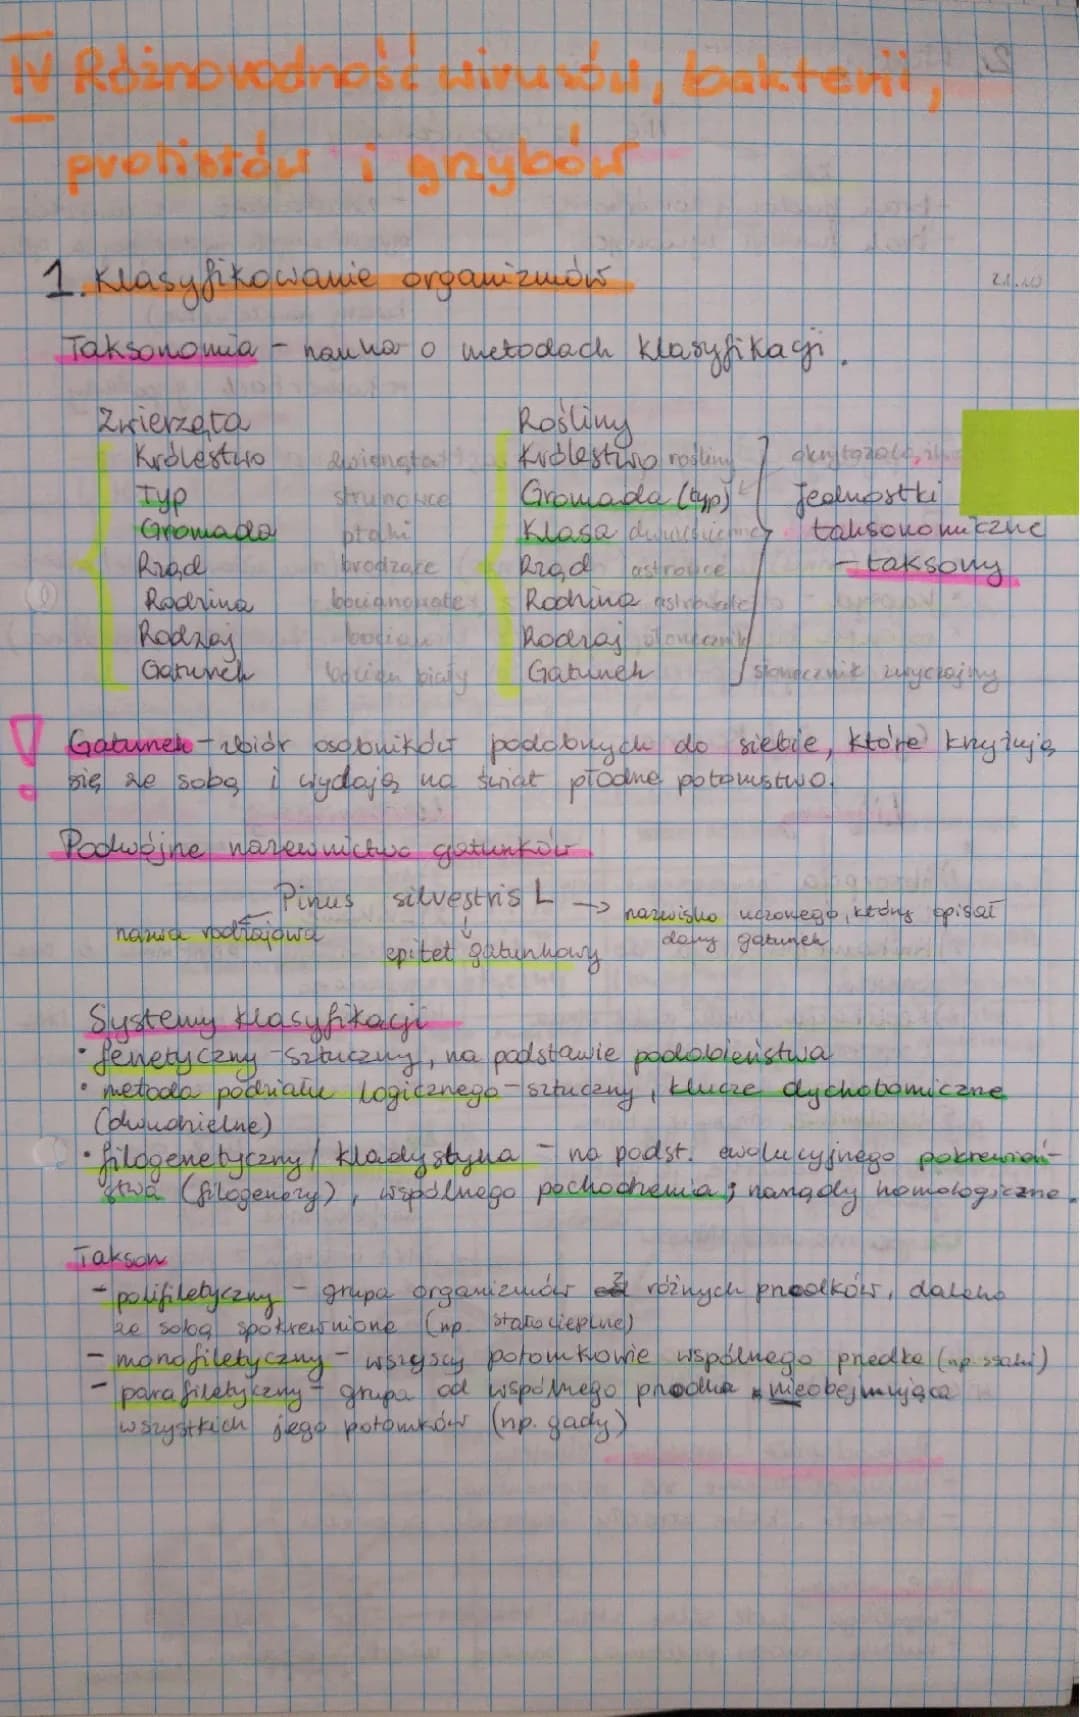 IV Różnorodność wirusów, bakterii,
protistów i grzybów
1. Klasyfikowanie organizmów
21.10
Taksonomia - nauka o metodach klasyfikacji.
Zwierzęta Rośliny
Królestwo zwierzęta Królestwo rośliny
Typ strunowce Gromada (typ) jednostki
Gromada ptaki Klasa dwuliścienne taksonomiczne
Rząd brodzące Rząd astrowce - taksony
Rodzina bocianowate Rodzina astrowate
Rodzaj bocian Rodzaj słonecznik
Gatunek bocian biały Gatunek słonecznik zwyczajny
! Gatunek - zbiór osobników podobnych do siebie, które krzyżują
się ze sobą i wydają na świat płodne potomstwo.
Podwójne nazewnictwo gatunków
Pinus silvestris L → nazwisko uczonego, który opisał
nazwa rodzajowa epitet gatunkowy dany gatunek
Systemy klasyfikacji
• fenetyczny - sztuczny, na podstawie podobieństwa
• metoda podziału logicznego - sztuczny, klucze dychotomiczne
(dwudzielne)
• filogenetyczny / kladystyka - na podst. ewolucyjnego pokrewień-
stwa (filogenezy), wspólnego pochodzenia; narządy homologiczne.
Takson
- polifiletyczny - grupa organizmów z różnych przodków, daleko
ze sobą spokrewnione (np. stałocieplne)
- monofiletyczny - wszyscy potomkowie wspólnego przodka (np. ssaki)
- parafiletyczny - grupa od wspólnego przodka nieobejmująca
wszystkich jego potomków (np. gady)